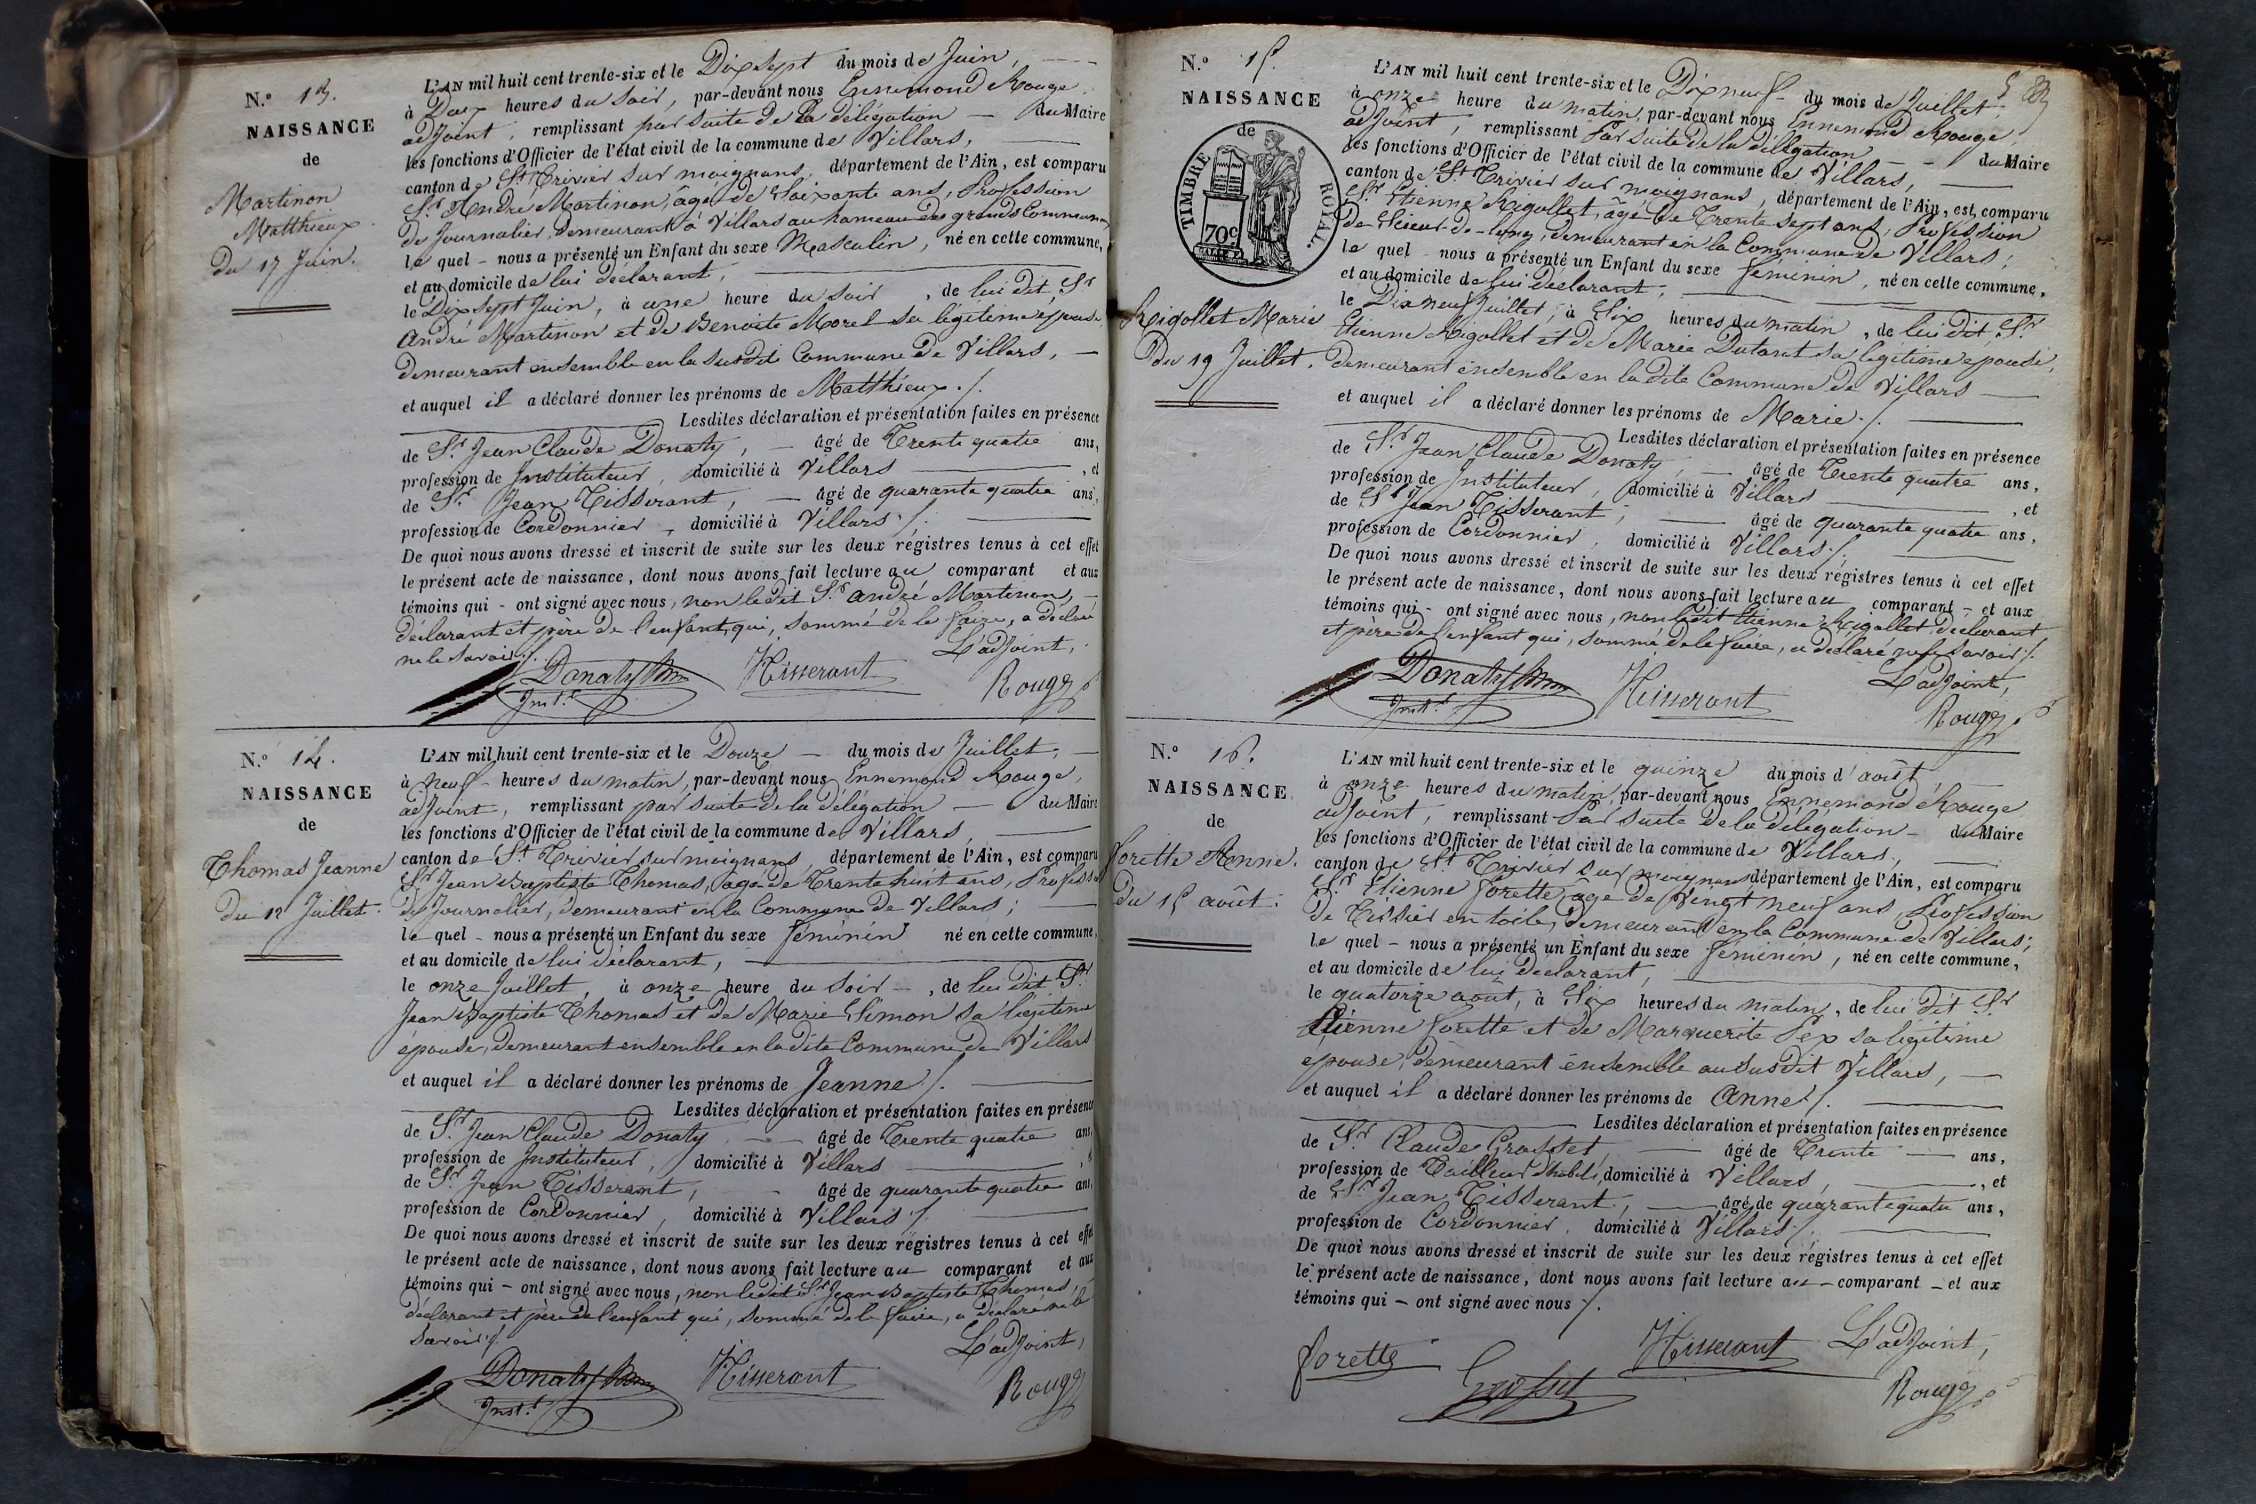 N.º 13.
NAISSANCE
de
Martinon
Matthieux
Du 17 Juin.
L'AN mil huit cent trente-six et le Dix sept du mois de Juin,
à Deux heures du soir, par-devant nous Ennemond Rouge,
adjoint, remplissant par suite de la délégation du Maire
les fonctions d'Officier de l'état civil de la commune de Villars,
canton de St. Trivier sur moignans, département de l'Ain, est comparu
Sr. André Martinon, âgé de Soixante ans, Profession
de Journalier, demeurant à Villars au hameau des grands Communaux
le quel - nous a présenté un Enfant du sexe Masculin, né en cette commune,
et au domicile de lui déclarant,
le Dix sept Juin, à une heure du soir, de lui dit Sr
André Martinon et de Benoite Morel sa légitime épouse,
demeurant ensemble en la susdite Commune de Villars,
et auquel il a déclaré donner les prénoms de Matthieux./.
Lesdites déclaration et présentation faites en présence
de Sr. Jean Claude Donaty, âgé de Trente quatre ans,
profession de Instituteur, domicilié à Villars, et
de Sr. Jean Tisserant, âgé de quarante quatre ans,
profession de Cordonnier, domicilié à Villars./.
De quoi nous avons dressé et inscrit de suite sur les deux régistres tenus à cet effet
le présent acte de naissance, dont nous avons fait lecture au comparant et aux
témoins qui - ont signé avec nous, non ledit Sr. André Martinon,
déclarant et père de l'enfant, qui, sommé de le faire, a déclaré
ne le savoir./.
L'adjoint,
Donaty
Inst.r
Tisserant
Rouge
N.º 14.
NAISSANCE
de
Thomas Jeanne
Du 12 Juillet.
L'AN mil huit cent trente-six et le Douze du mois de Juillet,
à neuf heures du matin, par-devant nous Ennemond Rouge,
adjoint, remplissant par suite de la délégation du Maire
les fonctions d'Officier de l'état civil de la commune de Villars,
canton de St. Trivier sur moignans, département de l'Ain, est comparu
Sr. Jean Baptiste Thomas, âgé de Trente huit ans, Profession
de Journalier, demeurant en la Commune de Villars;
le quel - nous a présenté un Enfant du sexe féminin né en cette commune,
et au domicile de lui déclarant,
le onze Juillet, à onze heure du soir -, de lui dit Sr.
Jean Baptiste Thomas et de Marie Simon sa légitime
epouse, demeurant ensemble en la dite Commune de Villars
et auquel il a déclaré donner les prénoms de Jeanne./.
Lesdites déclaration et présentation faites en présence
de Sr. Jean Claude Donaty âgé de Trente quatre ans,
profession de Instituteur, domicilié à Villars
de Sr. Jean Tisserant, âgé de quarante quatre ans,
profession de Cordonnier, domicilié à Villars./.
De quoi nous avons dressé et inscrit de suite sur les deux régistres tenus à cet effet
le présent acte de naissance, dont nous avons fait lecture au comparant et aux
témoins qui - ont signé avec nous, non ledit Sr. Jean Baptiste Thomas,
déclarant et père de l'enfant qui, sommé de le faire, a déclaré ne le
savoir./.
L'adjoint,
Donaty
Inst.r
Tisserant
Rouge
N.º 15.
NAISSANCE
de
TIMBRE ROYAL.
70c
Rigollet Marie
Du 19 Juillet.
L'AN mil huit cent trente-six et le Dix neuf du mois de Juillet,
à onze heure du matin, par-devant nous Ennemond Rouge,
adjoint, remplissant Par suite de la délégation du Maire
les fonctions d'Officier de l'état civil de la commune de Villars,
canton de St. Trivier sur moignans, département de l'Ain, est comparu
Sr. Etienne Rigollet, âgé de Trente sept ans, Profession
de Scieur-de-long, demeurant en la Commune de Villars;
le quel nous a présenté un Enfant du sexe féminin, né en cette commune,
et au domicile de lui déclarant,
le Dix neuf Juillet, à Six heures du matin, de lui dit Sr.
Etienne Rigollet et de Marie Dutarat sa légitime epouse,
demeurant ensemble en la dite Commune de Villars
et auquel il a déclaré donner les prénoms de Marie./.
Lesdites déclaration et présentation faites en présence
de Sr. Jean Claude Donaty, âgé de Trente quatre ans,
profession de Instituteur, domicilié à Villars, et
de Sr. Jean Tisserant, âgé de quarante quatre ans,
profession de Cordonnier, domicilié à Villars./.
De quoi nous avons dressé et inscrit de suite sur les deux régistres tenus à cet effet
le présent acte de naissance, dont nous avons fait lecture au comparant - et aux
témoins qui - ont signé avec nous, non ledit Etienne Rigollet déclarant
et père de l'enfant qui, sommé de le faire, a déclaré ne le savoir./.
L'adjoint,
Donaty
Inst.r
Tisserant
Rouge
N.º 16.
NAISSANCE
de
forette Anne.
Du 15 août.
L'AN mil huit cent trente-six et le quinze du mois d'août
à onze heures du matin, par-devant nous Ennemond Rouge
adjoint, remplissant Par suite de la délégation - du Maire
les fonctions d'Officier de l'état civil de la commune de Villars,
canton de St. Trivier sur moignans département de l'Ain, est comparu
Sr. Etienne forette, âgé de Vingt neuf ans, Profession
de Tissier en toile, demeurant en la Commune de Villars;
le quel - nous a présenté un Enfant du sexe féminin, né en cette commune,
et au domicile de lui déclarant,
le quatorze août, à Six heures du matin, de lui dit Sr
Etienne forette et de Marguerite Pex sa légitime
epouse, demeurant ensemble au susdit Villars,
et auquel il a déclaré donner les prénoms de Anne./.
Lesdites déclaration et présentation faites en présence
de Sr. Claude Grosset, âgé de Trente ans,
profession de Tailleur d'habits, domicilié à Villars, et
de Sr. Jean Tisserant, âgé de quarante quatre ans,
profession de Cordonnier, domicilié à Villars./.
De quoi nous avons dressé et inscrit de suite sur les deux régistres tenus à cet effet
le présent acte de naissance, dont nous avons fait lecture au - comparant - et aux
témoins qui - ont signé avec nous./.
forette
Grosset
Tisserant
L'adjoint,
Rouge